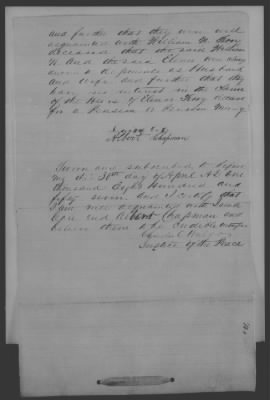 and further that they were well
acquainted with William H.
deceased that the said William
H. and the said Eleanor were always
during the
and wife and further that they
have no interest in the claim
of the Heirs of Eleanor deceased
for a Pension or Pension Money
Albert Chapman
Sworn and subscribed to before
me this 28th day of April A.D. One
thousand Eight Hundred and
fifty seven and I certify that
I am well acquainted with
and Albert Chapman and
believe them to be Credible
Justice of the Peace